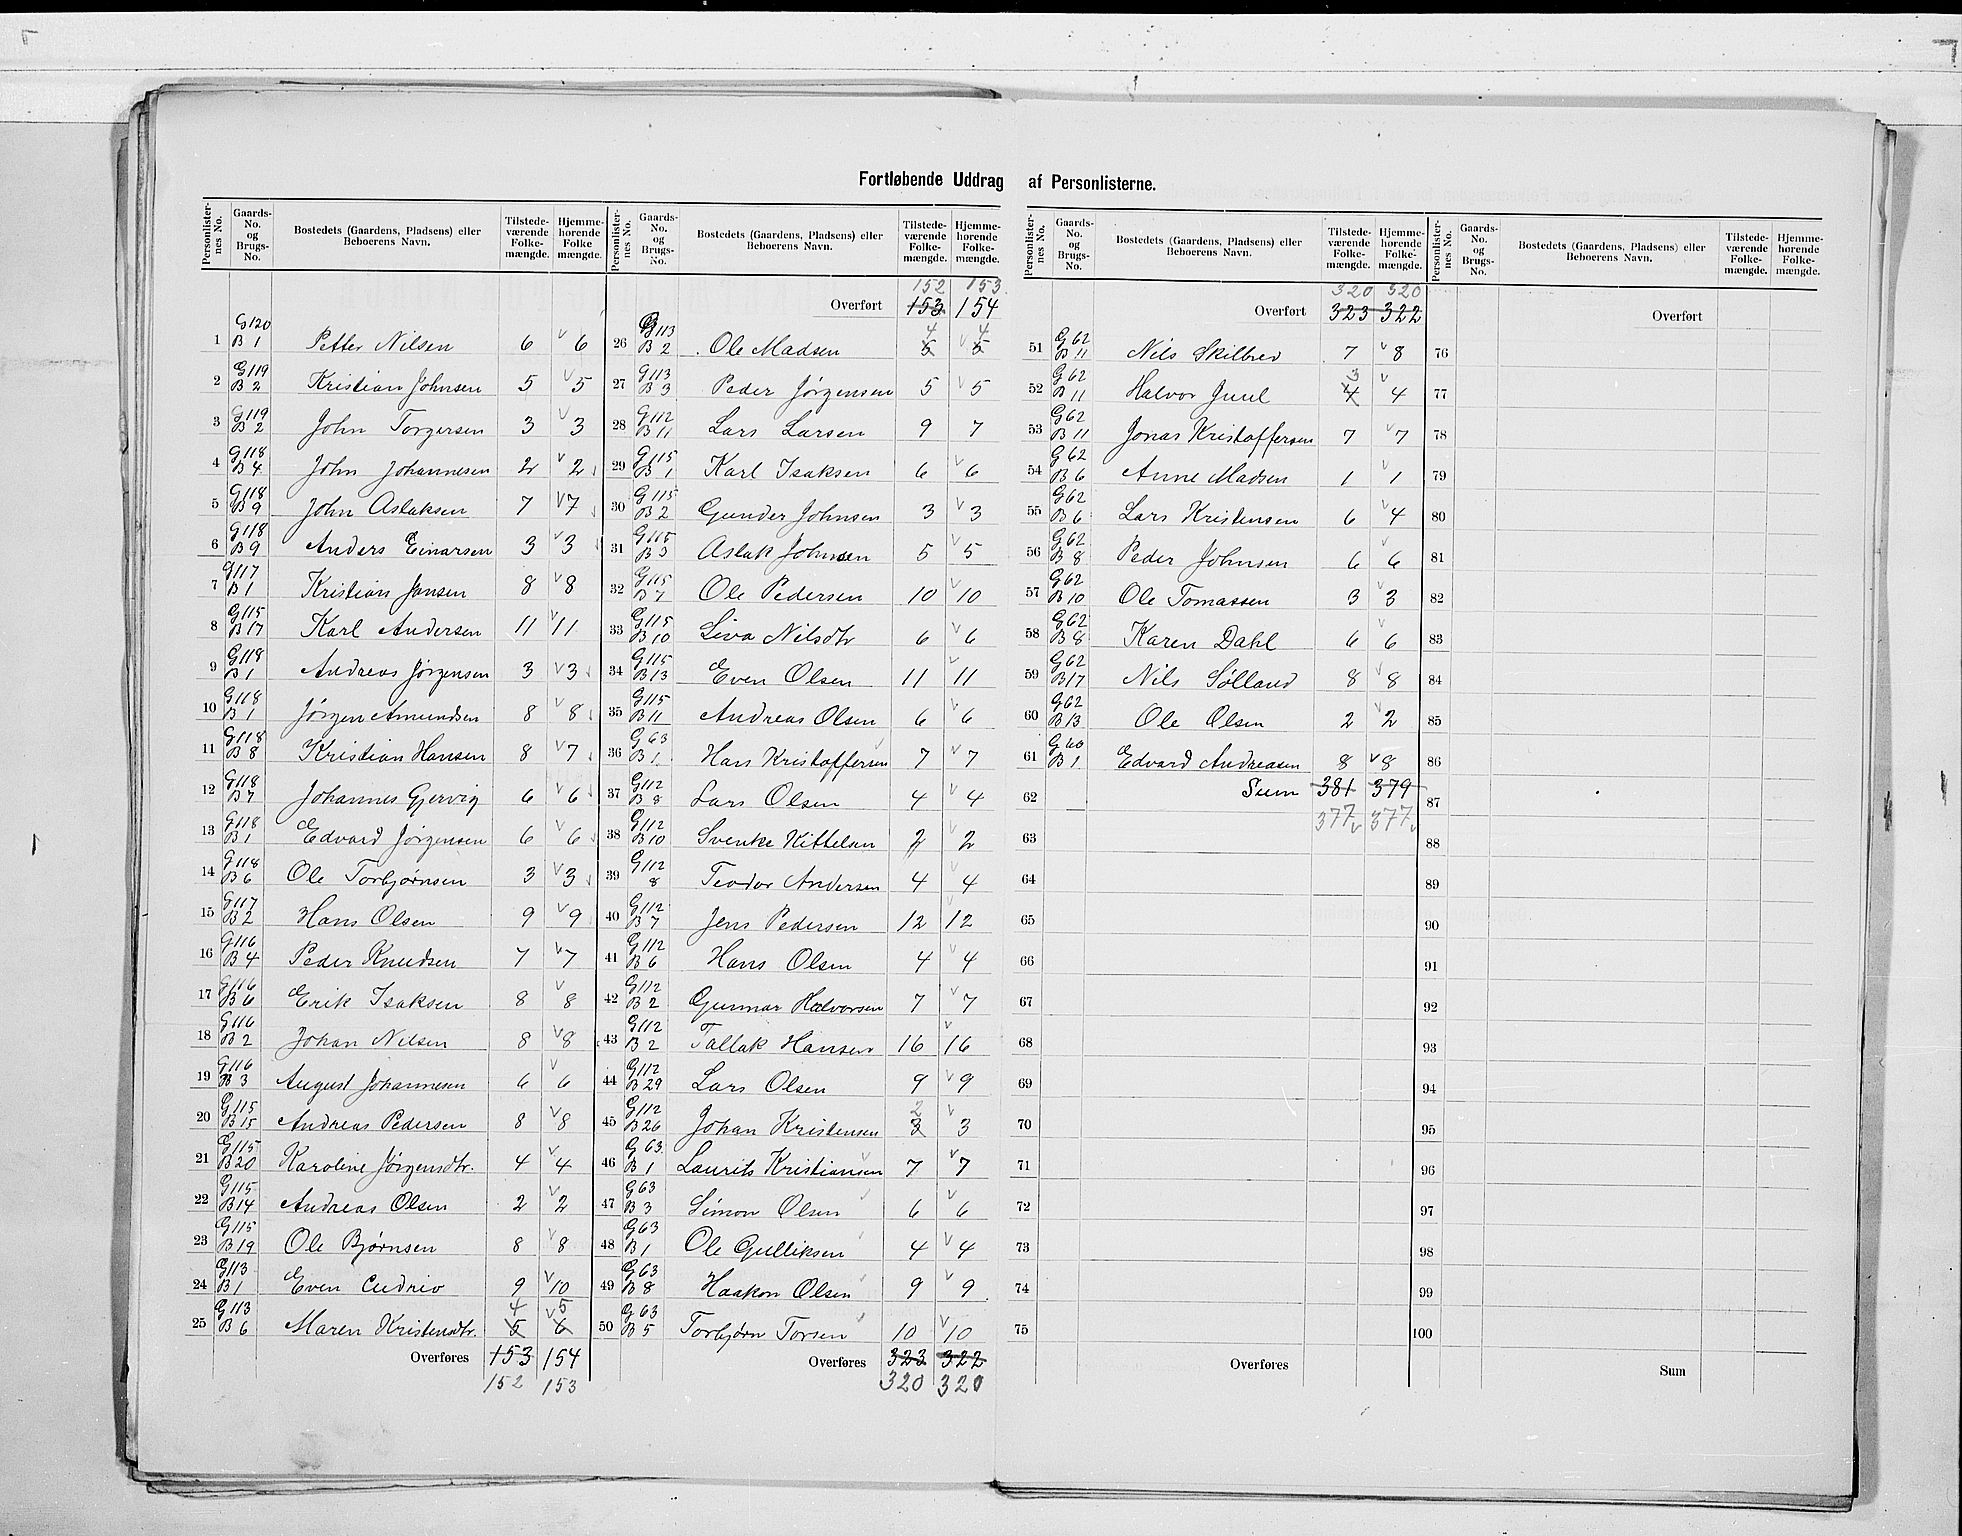 Fortløbende Uddrag af Personlisterne.
Personlister-nes No. | Gaards-No. og Brugs-No. | Bostedets (Gaardens, Pladsens) eller Beboerens Navn. | Tilstede-værende Folke-mængde. | Hjemme-hørende Folke mængde.
1 G120 B1 Petter Nilsen 6 v 6
2 G119 B2 Kristian Johnsen 5 v 5
3 G119 B2 John Torgersen 3 v 3
4 G118 B4 John Johannesen 2 v 2
5 G118 B9 John Aslaksen 7 v 7
6 G118 B9 Anders Einarsen 3 v 3
7 G117 B1 Kristian Jansen 8 v 8
8 G115 B17 Karl Andersen 11 v 11
9 G118 B1 Andreas Jørgensen 3 v 3
10 G118 B1 Jørgen Amundsen 8 v 8
11 G118 B8 Kristian Hansen 8 v 7
12 G118 B7 Johannes Gjervig 6 v 6
13 G118 B1 Edvard Jørgensen 6 v 6
14 G118 B6 Ole Torbjørnsen 3 v 3
15 G117 B2 Hans Olsen 9 v 9
16 G116 B4 Peder Knudsen 7 v 7
17 G116 B6 Erik Isaksen 8 v 8
18 G116 B2 Johan Nilsen 8 v 8
19 G116 B3 August Johannesen 6 v 6
20 G115 B15 Andreas Pedersen 8 v 8
21 G115 B20 Karoline Jørgensdtr. 4 v 4
22 G115 B14 Andreas Olsen 2 v 2
23 G115 B19 Ole Bjørnsen 8 v 8
24 G113 B1 Even 9 v 10
4 5
25 G113 B6 Maren Kristensdtr. 5 v 6
Overføres 153 154
152 153
Personlister-nes No. | Gaards-No. og Brugs-No. | Bostedets (Gaardens, Pladsens) eller Beboerens Navn. | Tilstede-værende Folke-mængde. | Hjemme-hørende Folke-mængde.
152 153
Overført 153 154
4 4
26 G113 B2 Ole Madsen 5 v 5
27 G113 B3 Peder Jørgensen 5 v 5
28 G112 B11 Lars Larsen 9 7
29 G115 B1 Karl Isaksen 6 v 6
30 G115 B2 Gunder Johnsen 3 v 3
31 G115 B3 Aslak Johnsen 5 v 5
32 G115 B7 Ole Pedersen 10 v 10
33 G115 B10 Liva Nilsdtr 6 v 6
34 G115 B13 Even Olsen 11 v 11
35 G115 B11 Andreas Olsen 6 v 6
36 G63 B1 Hans Kristoffersen 7 v 7
37 G112 B8 Lars Olsen 4 v 4
38 G112 B10 Svenke Kittelsen 2 v 2
39 G112 8 Teodor Andersen 4 v 4
40 G112 B7 Jens Pedersen 12 v 12
41 G112 B6 Hans Olsen 4 v 4
42 G112 B2 Gunnar Halvorsen 7 v 7
43 G112 B2 Tallak Hansen 16 v 16
44 G112 B29 Lars Olsen 9 v 9
2
45 G112 B26 Johan Kristensen 3 v 3
46 G63 B1 Laurits Kristiansen 7 v 7
47 G63 B3 Simon Olsen 6 v 6
48 G63 B1 Ole Gulliksen 4 v 4
49 G63 B8 Haakon Olsen 9 v 9
50 G63 B5 Torbjørn Torsen 10 v 10
Overføres 323 322
320 320
Personlister-nes No. | Gaards-No. og Brugs-No. | Bostedets (Gaardens, Pladsens) eller Beboerens Navn. | Tilstede-værende Folke-mængde. | Hjemme-hørende Folke-mængde.
320 320
Overført 323 322
51 G62 B11 Nils Skilbred 7 v 8
3
52 G62 B11 Halvor Juul 4 v 4
53 G62 B11 Jonas Kristoffersen 7 v 7
54 G62 B6 Anne Madsen 1 v 1
55 G62 B6 Lars Kristensen 6 v 4
56 G62 B8 Peder Johnsen 6 v 6
57 G62 B10 Ole Tomassen 3 v 3
58 G62 B8 Karen Dahl 6 v 6
59 G62 B17 Nils Sølland 8 v 8
60 G62 B13 Ole Olsen 2 v 2
61 G60 B1 Edvard Andreasen 8 v 8
62 Sum 381 379
377 v 377 v
63
64
65
66
67
68
69
70
71
72
73
74
75
Overføres
Personlister-nes No. | Gaards-No. og Brugs-No. | Bostedets (Gaardens, Pladsens) eller Beboerens Navn. | Tilstede-værende Folke-mængde. | Hjemme-hørende Folke-mængde.
Overført
76
77
78
79
80
81
82
83
84
85
86
87
88
89
90
91
92
93
94
95
96
97
98
99
100
Sum